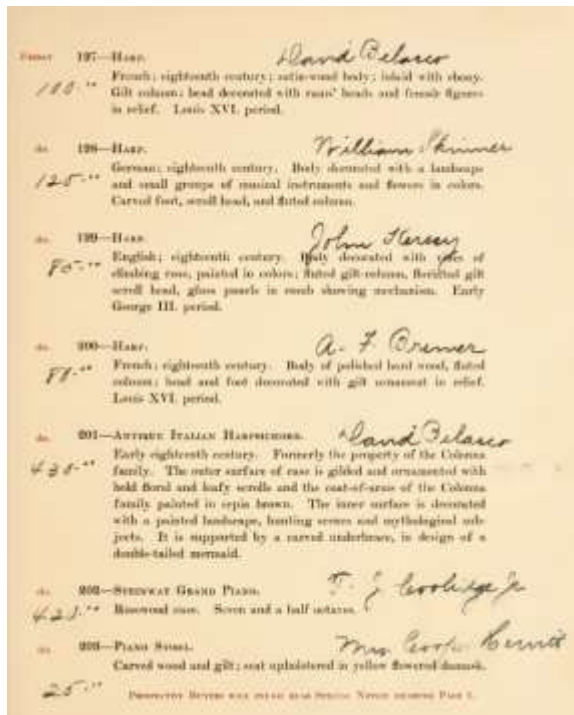 FRIDAY 197—HARP. David Belasco
100.00 French; eighteenth century; satin-wood body; inlaid with ebony.
Gilt column; head decorated with rams' heads and female figures
in relief. Louis XVI. period.
do. 198—HARP. William Skinner
125.00 German; eighteenth century. Body decorated with a landscape
and small groups of musical instruments and flowers in colors.
Carved foot, scroll head, and fluted column.
do. 199—HARP. John
85.00 English; eighteenth century. Body decorated with vines of
climbing rose, painted in colors; fluted gilt-column, florated gilt
scroll head, glass panels in comb showing mechanism. Early
George III. period.
do. 200—HARP. A. F.
80.00 French; eighteenth century. Body of polished hard wood, fluted
column; head and foot decorated with gilt ornament in relief.
Louis XVI. period.
do. 201—ANTIQUE ITALIAN HARPSICHORD. David Belasco
430.00 Early eighteenth century. Formerly the property of the Colonna
family. The outer surface of case is gilded and ornamented with
bold floral and leafy scrolls and the coat-of-arms of the Colonna
family painted in sepia brown. The inner surface is decorated
with a painted landscape, hunting scenes and mythological sub-
jects. It is supported by a carved underbrace, in design of a
double-tailed mermaid.
do. 202—STEINWAY GRAND PIANO. T. J. Coolidge Jr
425.00 Rosewood case. Seven and a half octaves.
do. 203—PIANO STOOL. Mrs Cooper Hewitt
Carved wood and gilt; seat upholstered in yellow flowered damask.
25.00
PROSPECTIVE BUYERS WILL PLEASE READ SPECIAL NOTICE FACING PAGE 1.